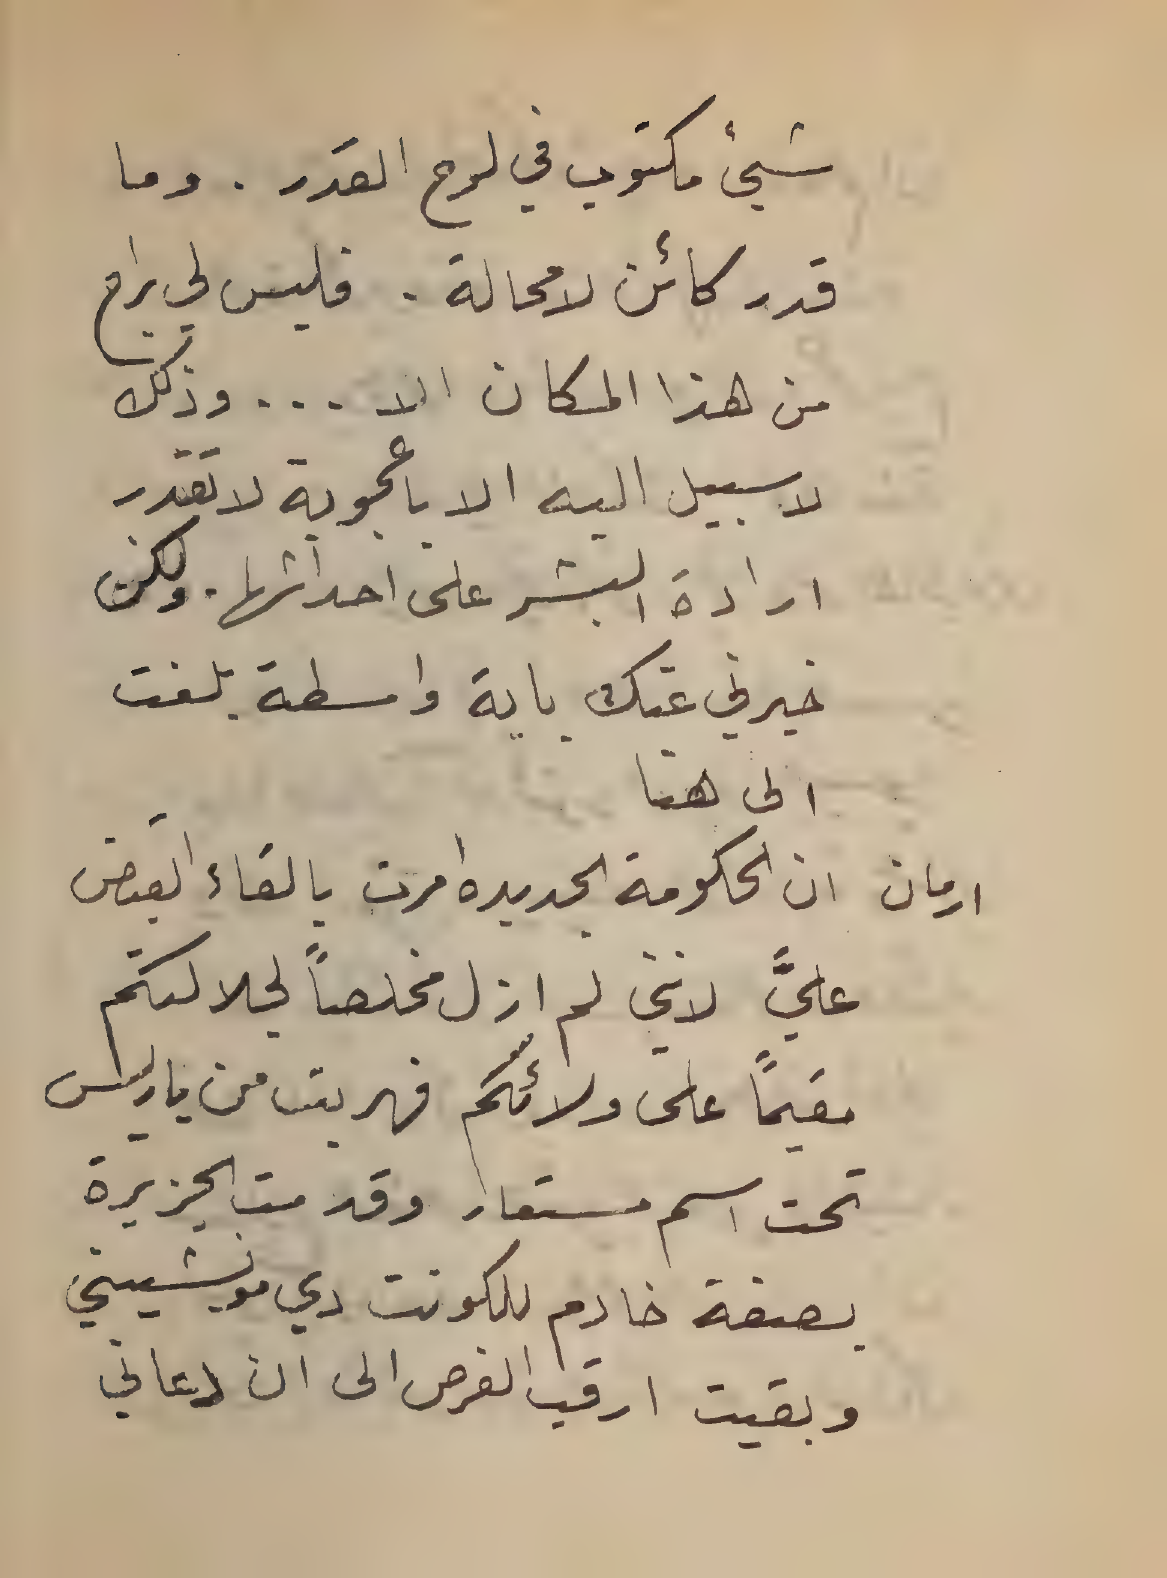 شيئ مكتوب في لوح القدر . وما
قدر كائن لا محالة . فليس لي براح
من هذا المكان الا .... وذلك
لا سبيل اليه الا باعجوبة لا تقدر
ارادة البشر على احداثها . ولكن
خبرني عنك باية واسطة بلغت
الى هنا
ارمان ان الحكومة الجديده امرت بالقاء القبض
عليَّ لانني لم ازل مخلصاً لجلالتكم
مقيماً على ولائكم فهربت من باريس
تحت اسم مستعار وقدمت الجزيرة
بصفة خادم للكونت دي مونشيني
وبقيت ارقب الفرص الى ان دعاني